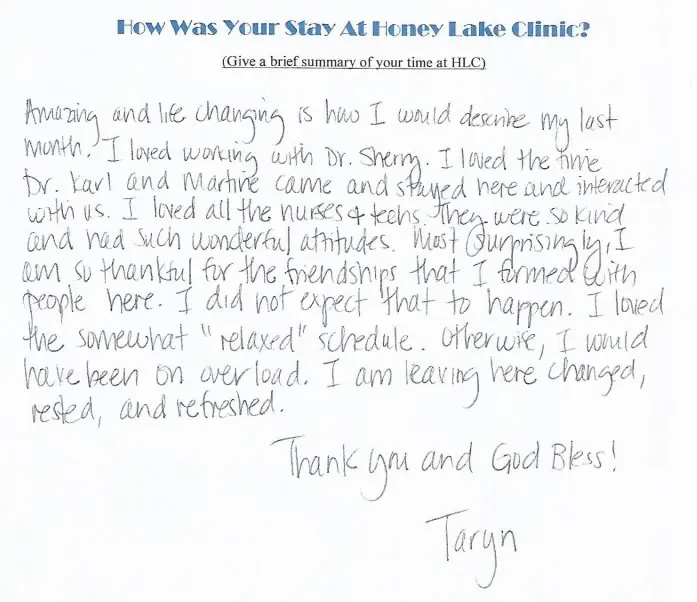 How Was Your Stay At Honey Lake Clinic?
(Give a brief summary of your time at HLC)
Amazing and life changing is how I would describe my last
month. I loved working with Dr. Sherry. I loved the time
Dr. Karl and Martine came and stayed here and interacted
with us. I loved all the nurses & techs. They were so kind
and had such wonderful attitudes. Most surprisingly, I
am so thankful for the friendships that I formed with
people here. I did not expect that to happen. I loved
the somewhat "relaxed" schedule. Otherwise, I would
have been on overload. I am leaving here changed,
rested, and refreshed.
Thank you and God Bless!
Taryn